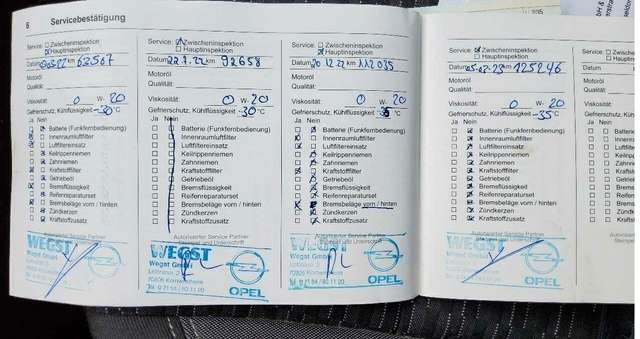 6 Servicebestätigung
Service: Zwischeninspektion
Hauptinspektion
km 63567
Motoröl
Qualität:
Viskosität: 0 W- 20
Gefrierschutz, Kühlflüssigkeit -30 °C
Ja Nein
Batterie (Funkfernbedienung)
Innenraumluftfilter
Luftfiltereinsatz
Keilrippenriemen
Zahnriemen
Kraftstofffilter
Getriebeöl
Bremsflüssigkeit
Reifenreparaturset
Bremsbeläge vorn / hinten
Zündkerzen
Kraftstoffzusatz
Autorisierter Service Partner
WEGST
Wegst GmbH
OPEL
Service: Zwischeninspektion
Hauptinspektion
Datum km 92658
Motoröl
Qualität:
Viskosität: 0 W- 20
Gefrierschutz, Kühlflüssigkeit -30 °C
Ja Nein
Batterie (Funkfernbedienung)
Innenraumluftfilter
Luftfiltereinsatz
Keilrippenriemen
Zahnriemen
Kraftstofffilter
Getriebeöl
Bremsflüssigkeit
Reifenreparaturset
Bremsbeläge vorn / hinten
Zündkerzen
Kraftstoffzusatz
Autorisierter Service Partner
WEGST
Wegst GmbH
70806 Kornwestheim
OPEL
Service: Zwischeninspektion
Hauptinspektion
Datum km 112035
Motoröl
Qualität:
Viskosität: 0 W- 20
Gefrierschutz, Kühlflüssigkeit °C
Ja Nein
Batterie (Funkfernbedienung)
Innenraumluftfilter
Luftfiltereinsatz
Keilrippenriemen
Zahnriemen
Kraftstofffilter
Getriebeöl
Bremsflüssigkeit
Reifenreparaturset
Bremsbeläge vorn / hinten
Zündkerzen
Kraftstoffzusatz
Autorisierter Service Partner
WEGST
Wegst GmbH
70806 Kornwestheim
OPEL
Service: Zwischeninspektion
Hauptinspektion
km 125246
Motoröl
Qualität:
Viskosität: 0 W- 20
Gefrierschutz, Kühlflüssigkeit -35 °C
Ja Nein
Batterie (Funkfernbedienung)
Innenraumluftfilter
Luftfiltereinsatz
Keilrippenriemen
Zahnriemen
Kraftstofffilter
Getriebeöl
Bremsflüssigkeit
Reifenreparaturset
Bremsbeläge vorn / hinten
Zündkerzen
Kraftstoffzusatz
Autorisierter Service Partner
WEGST
OPEL
Service:
Datum
Motoröl
Qualität:
Viskosität:
Gefrierschutz, K
Ja Nein